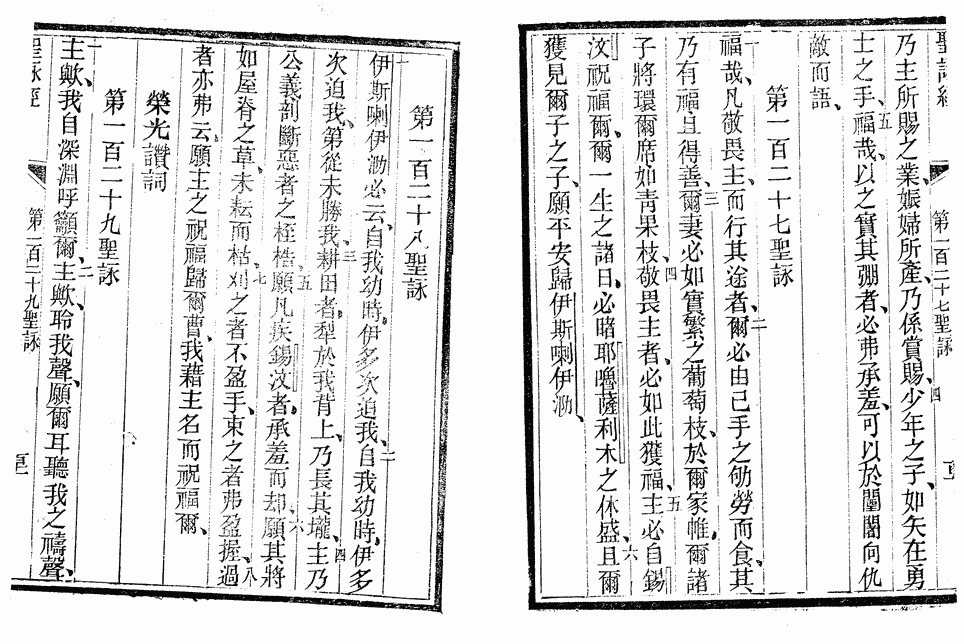 聖詠經
第一百二十七聖詠
乃主所賜之業、娠婦所產、乃係賞賜、四少年之子、如矢在勇
士之手、五福哉、以之實其弸者、必弗承羞、可以於闉闍向仇
敵而語、
第一百二十七聖詠
一福哉、凡敬畏主、而行其途者、二爾必由己手之劬勞而食、其
乃有福且得善、三爾妻必如實繁之葡萄枝、於爾家帷、爾諸
子將環爾席如青果枝、四敬畏主者、必如此獲福、五主必自錫
汶祝福爾、爾一生之諸日、必睹耶嚕薩利木之休盛、六且爾
獲見爾子之子、願平安歸伊斯喇伊泐、
第一百二十八聖詠
一伊斯喇伊泐必云、自我幼時、伊多次迫我、二自我幼時、伊多
次迫我、第從未勝我、三耕田者、犁於我背上、乃長其壠、四主乃
公義剖斷惡者之桎梏、五願凡疾錫汶者、承羞而却、六願其將
如屋脊之草、未耘而枯、七刈之者不盈手、束之者弗盈握、八過
者亦弗云、願主之祝福歸爾曹、我藉主名而祝福爾、
榮光讚詞
第一百二十九聖詠
一主歟、我自深淵呼籲爾、二主歟、聆我聲、願爾耳聽我之禱聲、
聖詠經
第一百二十九聖詠